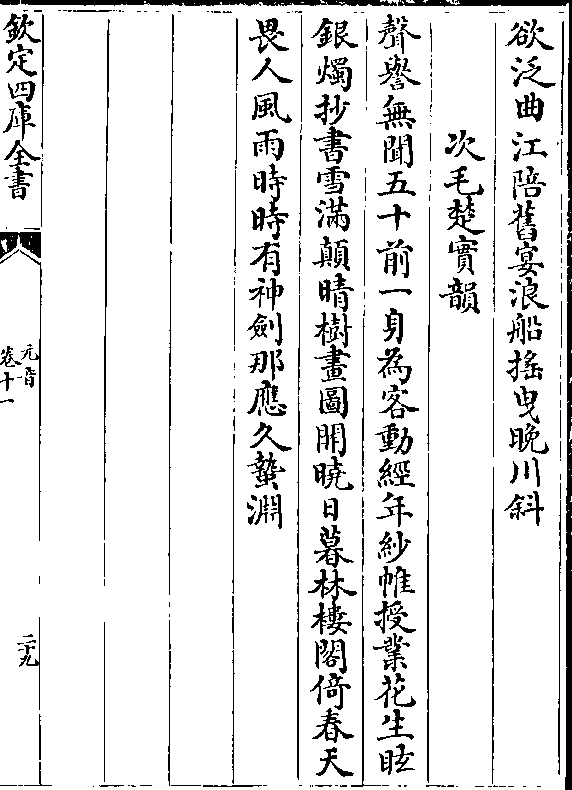 欲泛曲江陪舊宴浪船搖曳晚川斜
次毛楚實韻
聲譽無聞五十前一身為客動經年紗帷授業花生眩
銀燭抄書雪滿顛晴樹畫圖開曉日暮林樓閣倚春天
畏人風雨時時有神劍那應久蟄淵
欽定四庫全書
元音
卷十一
二十九